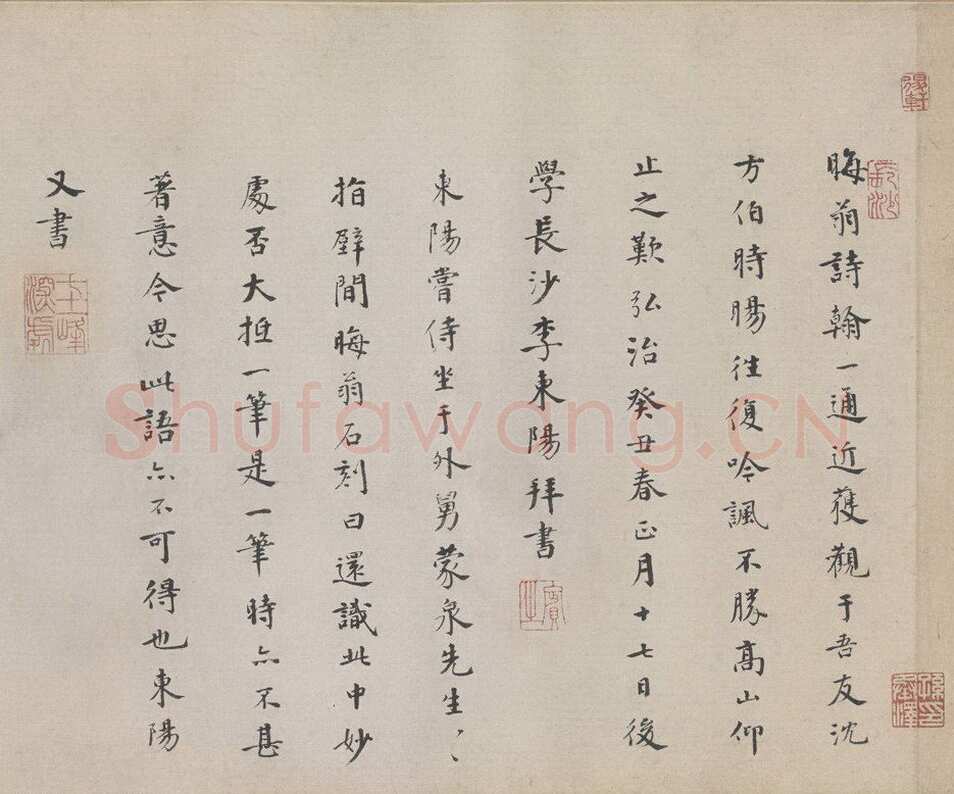 晦翁詩翰一通近蒦觀于吾友沈
方伯時暘往復吟諷不勝高山仰
止之歎弘治癸丑春正月十七日後
學長沙李東陽拜書
東陽嘗侍坐于外舅蒙泉先生〻
指壁間晦翁石刻曰還識此中妙
處否大抵一筆是一筆時亦不甚
著意今思此語亦不可得也東陽
又書
長沙
賓之
Shufawang.CN